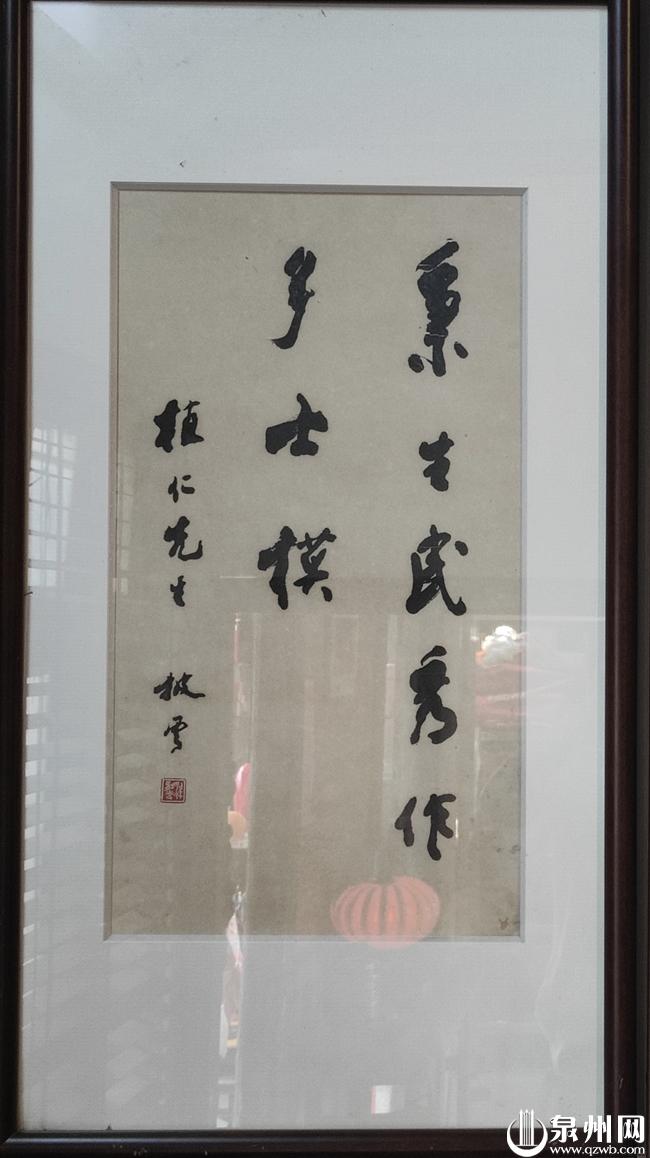 生民秀作
多士模
植仁先生 披雲
泉州网
www.qzwb.com